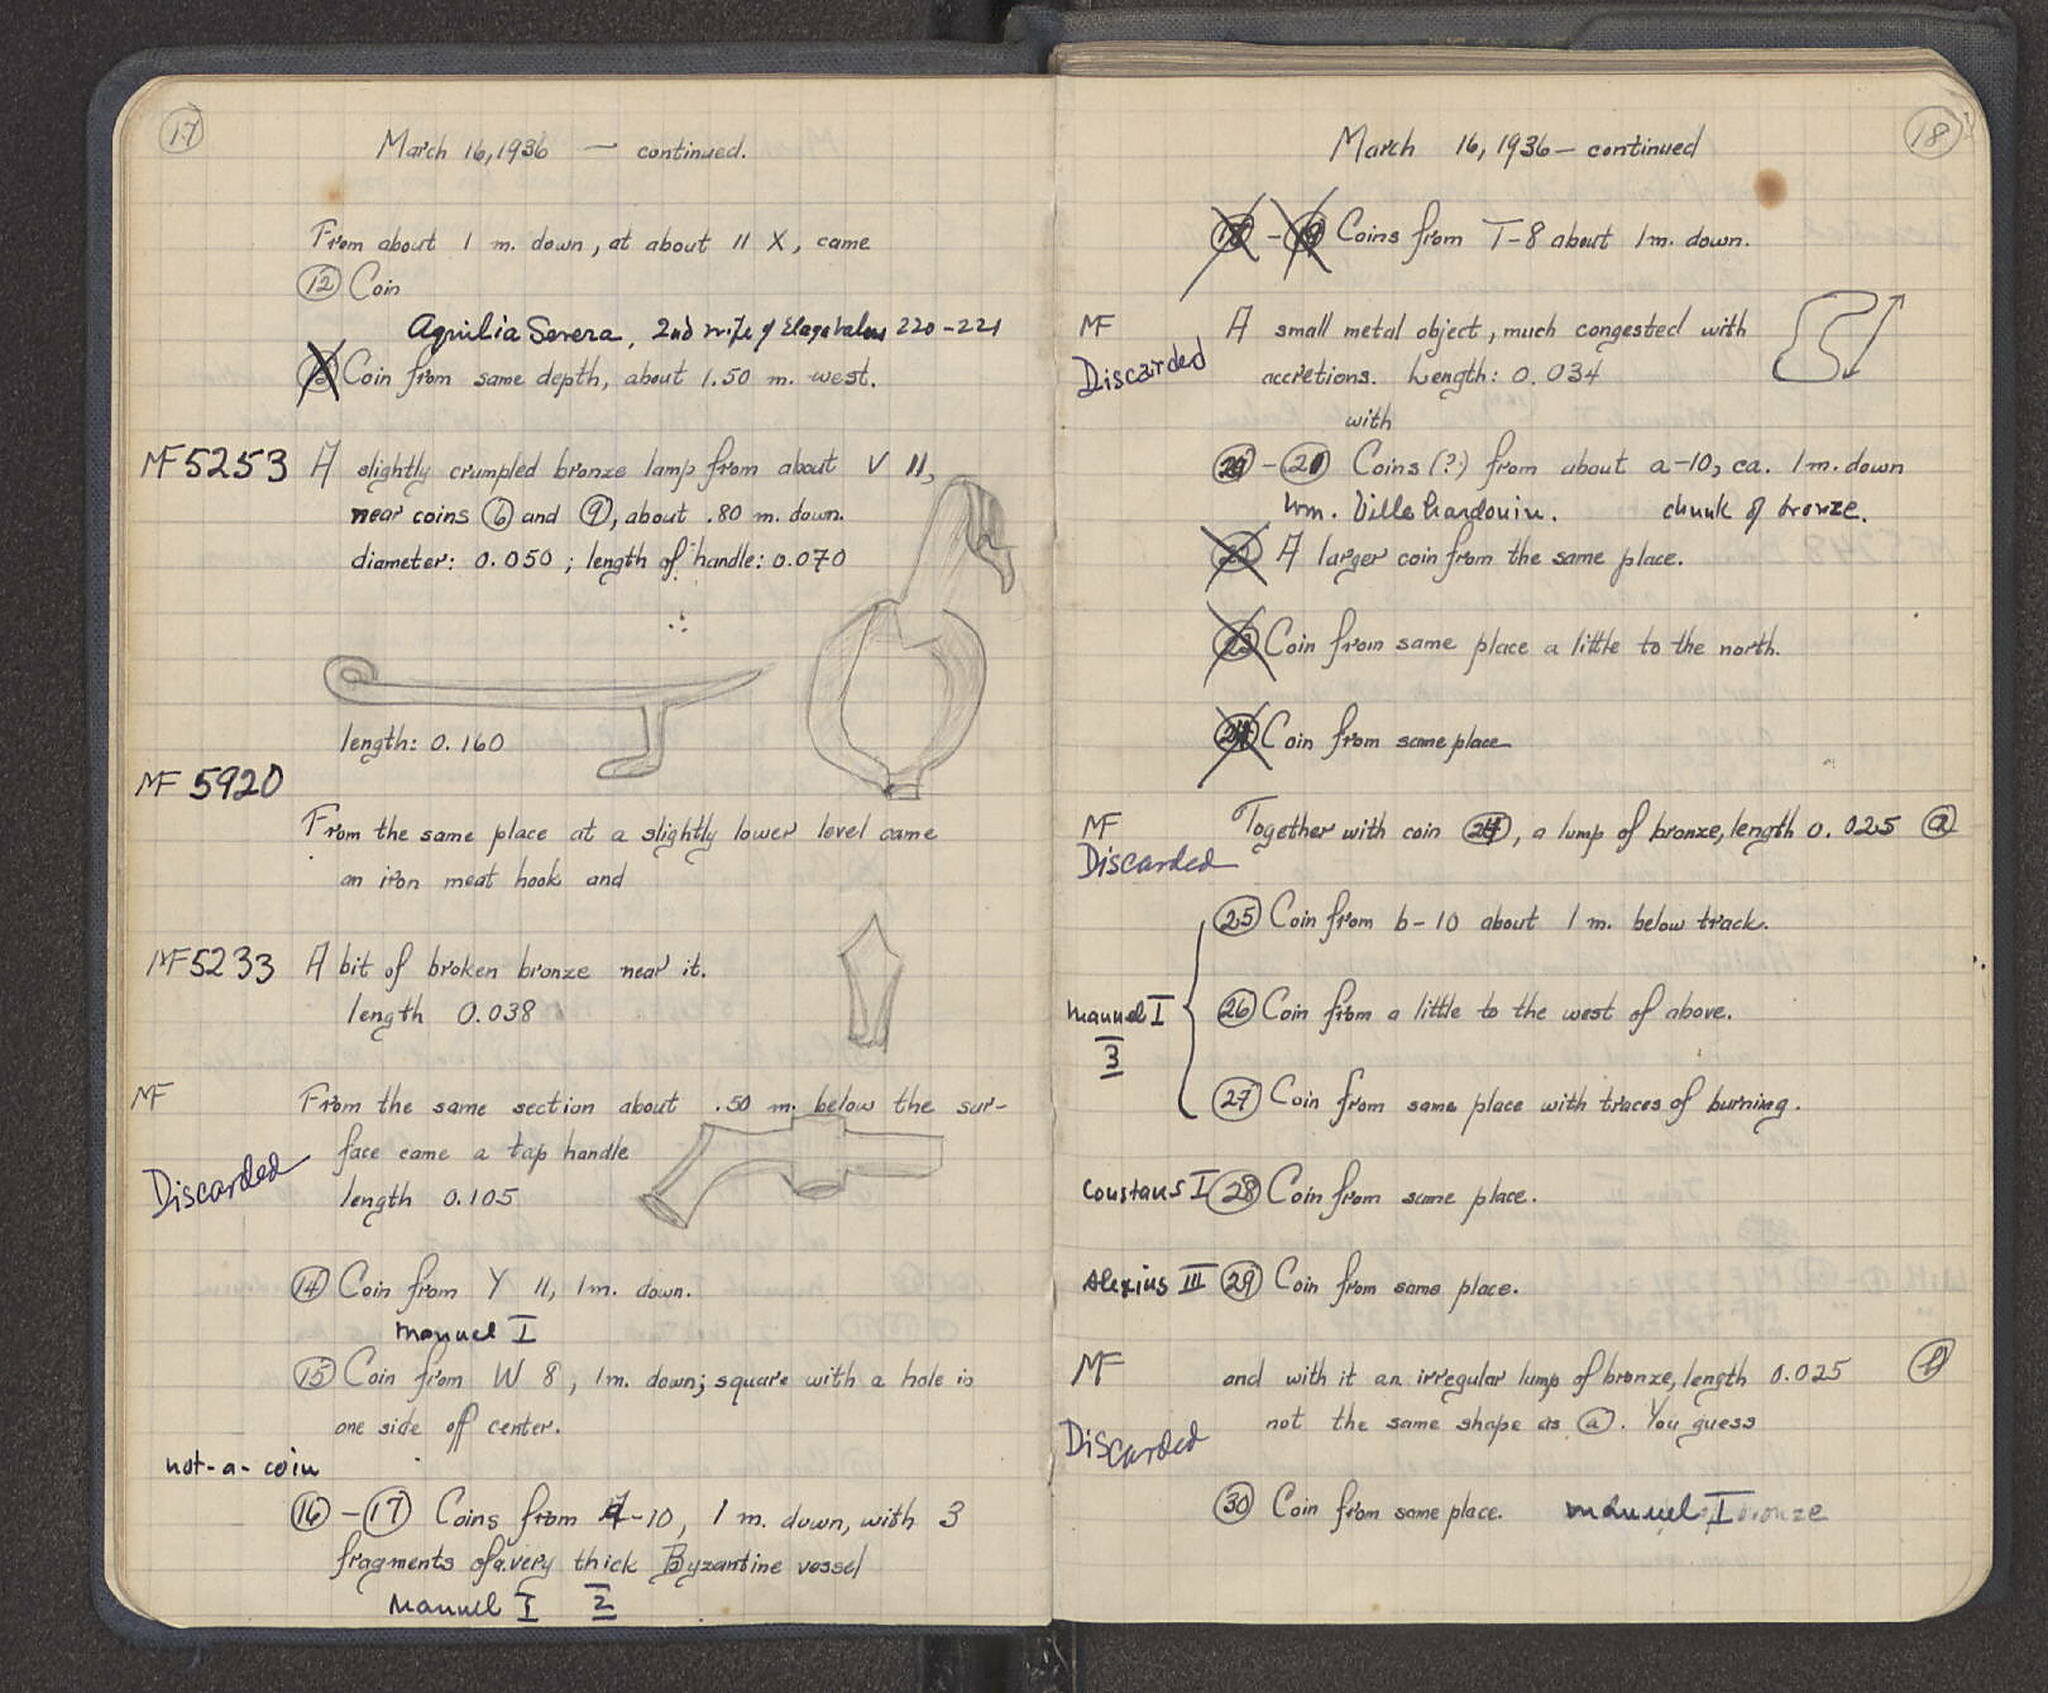 17
March 16, 1936 — continued.
From about 1 m. down, at about 11 X, came
12 Coin
Aquilia Severa, 2nd wife of Elagabalus 220-221
13 Coin from same depth, about 1.50 m. west.
MF 5253 A slightly crumpled bronze lamp from about V 11,
near coins 6 and 9, about .80 m. down.
diameter: 0.050 ; length of handle: 0.070
length: 0.160
MF 5920
From the same place at a slightly lower level came
an iron meat hook and
MF 5233 A bit of broken bronze near it.
length 0.038
MF From the same section about .50 m. below the sur-
face came a tap handle
Discarded
length 0.105
14 Coin from Y 11, 1 m. down.
Manuel I
15 Coin from W 8, 1 m. down; square with a hole in
one side off center.
not-a-coin
16 - 17 Coins from -10, 1 m. down, with 3
fragments of a very thick Byzantine vessel
Manuel I 2
18
March 16, 1936 — continued
18 - 19 Coins from T-8 about 1 m. down.
MF A small metal object, much congested with
Discarded accretions. Length: 0.034
with
20 - 21 Coins (?) from about a-10, ca. 1 m. down
Wm. Villehardouin. chunk of bronze.
22 A larger coin from the same place.
23 Coin from same place a little to the north.
24 Coin from same place
MF Together with coin 24, a lump of bronze, length 0.025 a
Discarded
25 Coin from b-10 about 1 m. below track.
Manuel I 26 Coin from a little to the west of above.
3
27 Coin from same place with traces of burning.
Constans I 28 Coin from same place.
Alexius III 29 Coin from same place.
MF and with it an irregular lump of bronze, length 0.025 b
not the same shape as a. You guess
Discarded
30 Coin from same place. Manuel I bronze